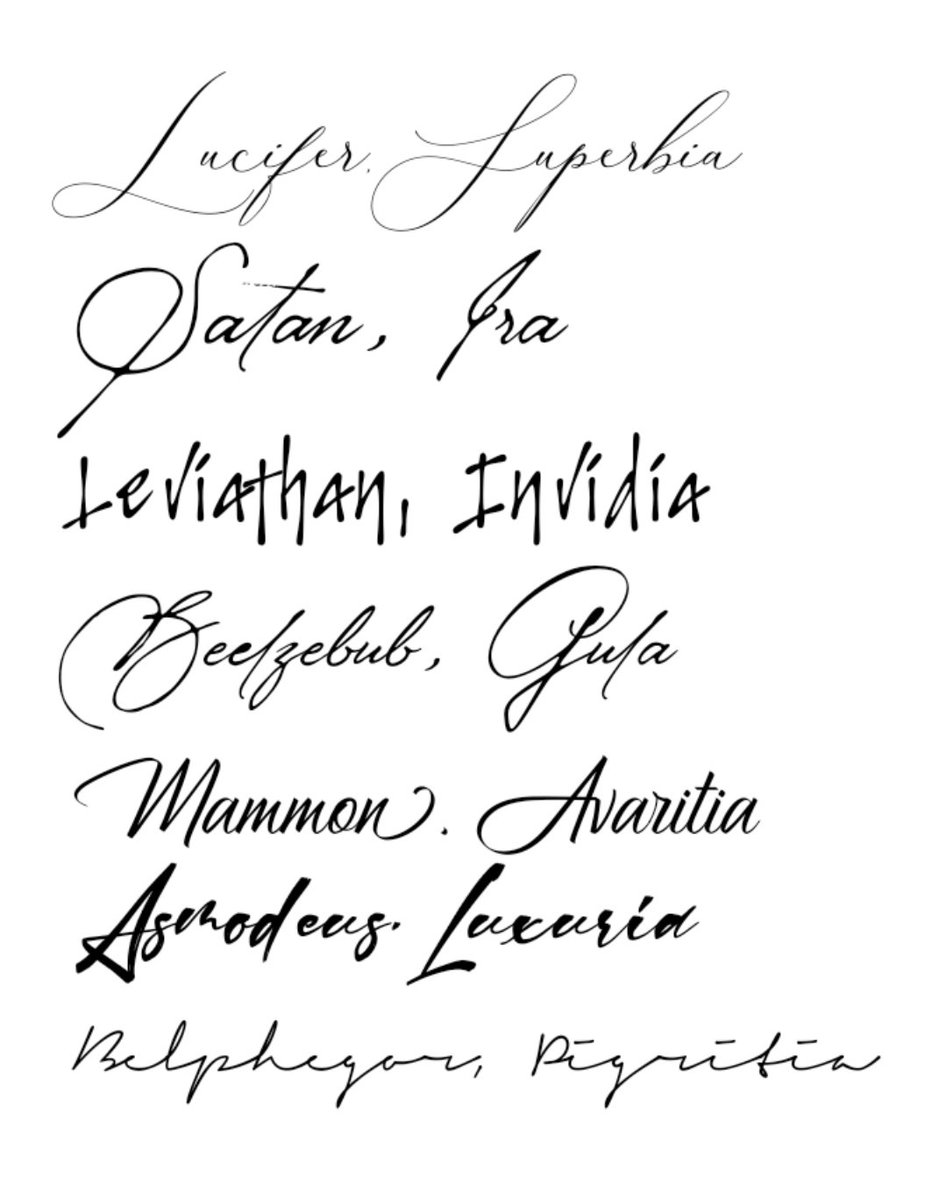 Lucifer, Superbia
Satan, Ira
Leviathan, Invidia
Beelzebub, Gula
Mammon, Avaritia
Asmodeus, Luxuria
Belphegor, Pigritia